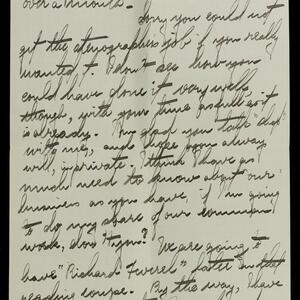 over a month.
Sorry you could not
get the stenographer's job if you really
wanted it. I don't see how you
could have done it very well
though, with your time as full as it
is already. I'm glad you talk "shop"
with me, and hope you always
will, in private. I think I have as
much need to know about "our"
business as you have, if I'm going
to do my share of our common
work, don't you? We are going to
have "Richard Feverel" later in that
reading course. By the way, I have